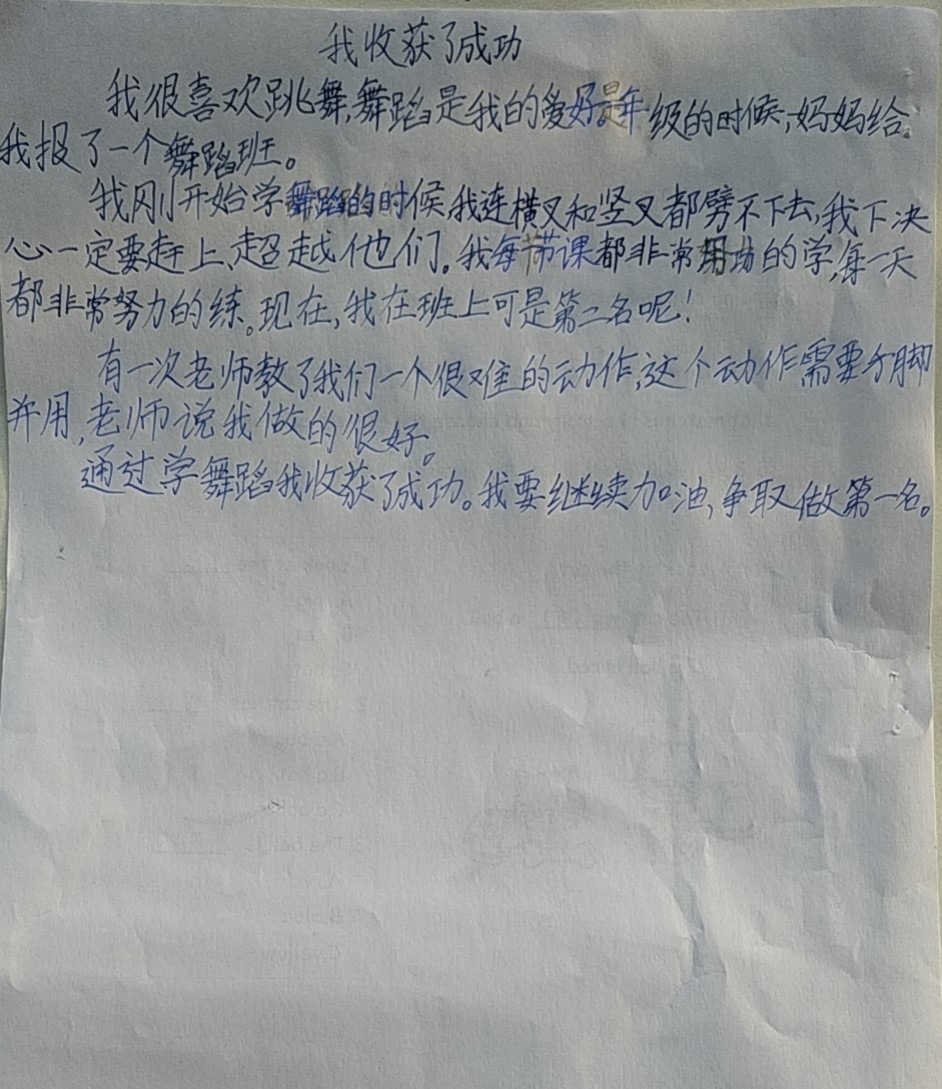 我收获了成功
我很喜欢跳舞,舞蹈是我的爱好。年级的时候,妈妈给
我报了一个舞蹈班。
我刚开始学舞蹈的时候,我连横叉和竖叉都劈不下去,我下决
心一定要赶上、超越他们。我每节课都非常用功的学,每一天
都非常努力的练。现在,我在班上可是第二名呢!
有一次老师教了我们一个很难的动作,这个动作需要脚
并用,老师说我做的很好。
通过学舞蹈我收获了成功。我要继续加油,争取做第一名。